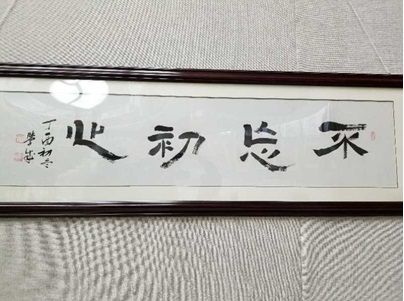 不忘初心
丁酉初冬